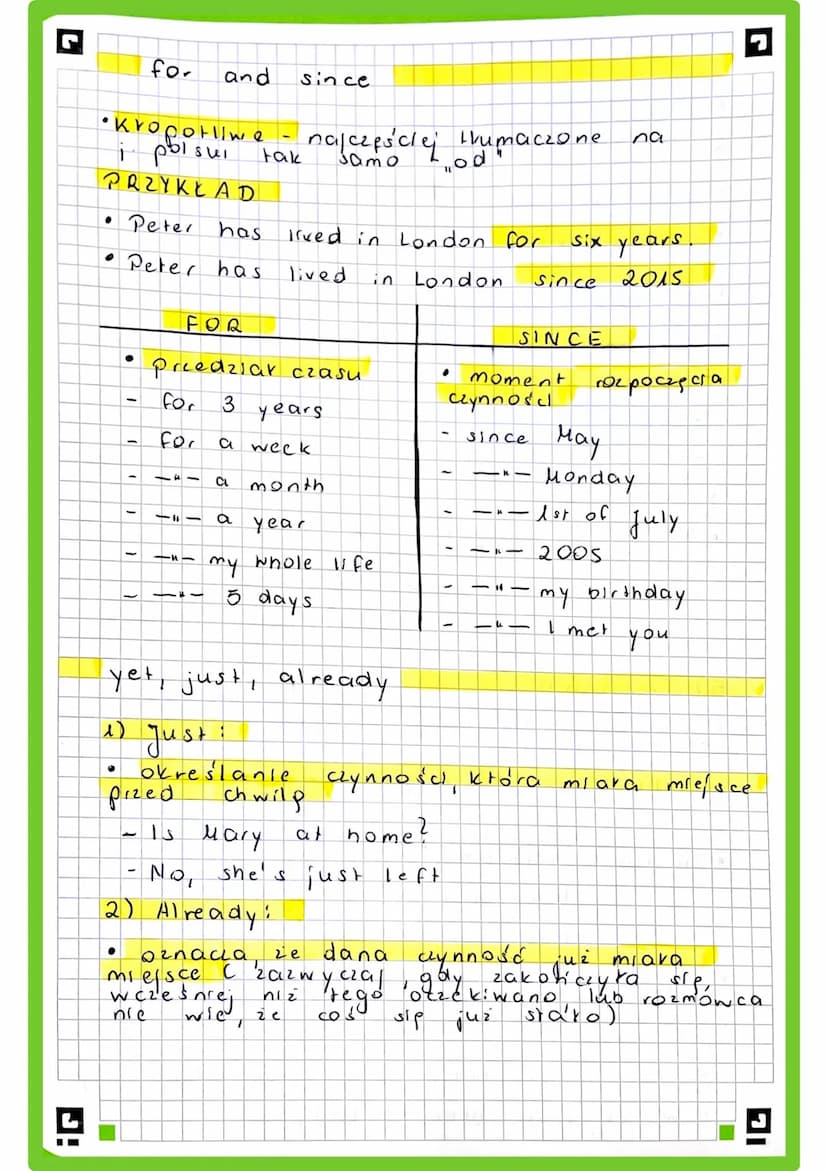 for and since
• Kłopotliwe - najczęściej tłumaczone na
j. polski tak samo „od"
PRZYKŁAD
• Peter has lived in London for six years.
• Peter has lived in London since 2015
FOR
• przedział czasu
- for 3 years
- for a week
- —"— a month
- —"— a year
- —"— my whole life
- —"— 5 days
SINCE
• moment rozpoczęcia
czynności
- since May
- —"— Monday
- —"— 1st of July
- —"— 2005
- —"— my birthday
- —"— I met you
yet, just, already
1) Just:
• określanie czynności, która miała miejsce
przed chwilą
- Is Mary at home?
- No, she's just left
2) Already:
• oznacza, że dana czynność już miała
miejsce ( zazwyczaj, gdy zakończyła się,
wcześniej niż tego oczekiwano lub rozmówca
nie wie, że coś się już stało)